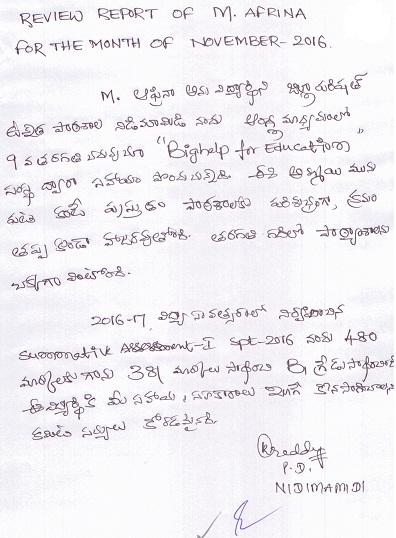 REVIEW REPORT OF M. AFRINA
FOR THE MONTH OF NOVEMBER-2016.
M. ఆఫ్రినా అను విద్యార్థిని జిల్లా పరిషత్
ఉన్నత పాఠశాల నిడిమామిడి నందు ఆంగ్ల మాధ్యమంలో
9 వ తరగతి చదువుచూ "Bighelp for Education"
సంస్థ ద్వారా సహాయం పొందుచున్నది. ఈ అమ్మాయి
ప్రస్తుతం పాఠశాలకు క్రమం
తప్పకుండా హాజరవుతోంది. తరగతి గదిలో పాఠ్యాంశాలను
చక్కగా వింటోంది.
2016-17, విద్యా సంవత్సరంలో నిర్వహించిన
Summative Assessment-I Sept-2016 నందు 480
మార్కులకు గాను 381 మార్కులు సాధించి B గ్రేడు సాధించింది
ఈ విద్యార్థికి మీ సహాయ, సహకారాలు ఇలాగే కొనసాగించాలని
కమిటీ సభ్యులు కోరడమైనది.
KReddy
P.D,
NIDIMAMIDI